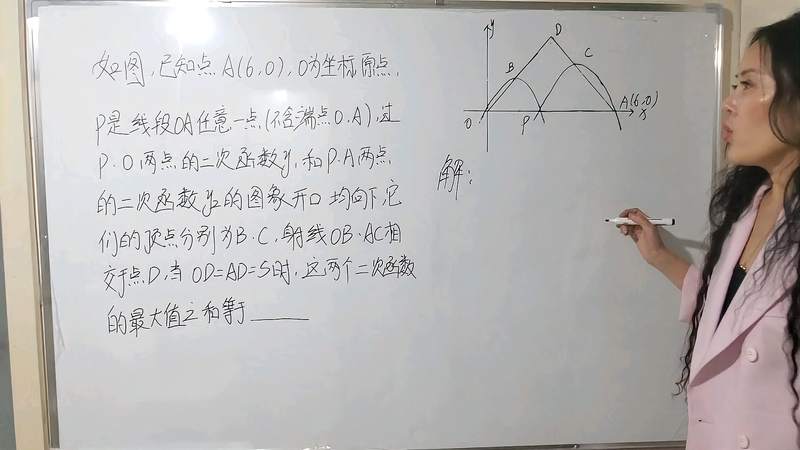 如图,已知点A(6,0),O为坐标原点,
P是线段OA任意一点(不含端点O.A),过
P.O两点的二次函数y₁和P.A两点
的二次函数y₂的图象开口均向下,它
们的顶点分别为B.C,射线OB.AC相
交于点D,当OD=AD=5时,这两个二次函数
的最大值之和等于______
解:
y
D
B
C
A(6,0)
O
P
x